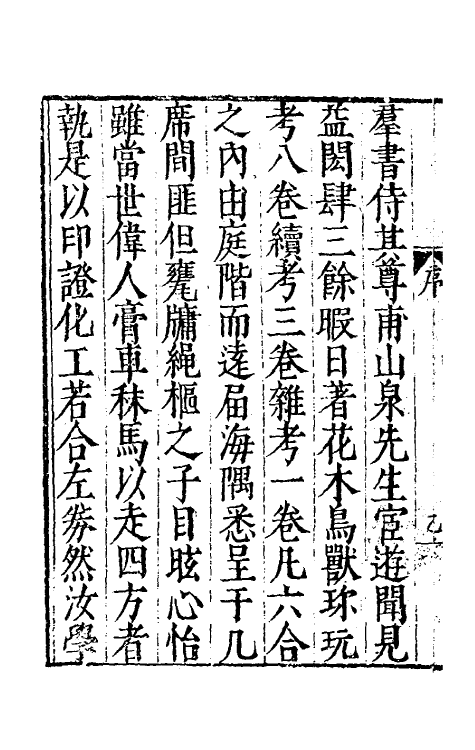 羣書侍其尊甫山泉先生宦遊聞見
益閎肆三餘暇日著花木鳥獸珎玩
考八卷續考三卷雜考一卷凡六合
之內由庭階而逺届海隅悉呈于几
席間匪但甕牖䋲樞之子目眩心怡
雖當世偉人膏車秣馬以走四方者
執是以印證化工若合左劵然汝學
序